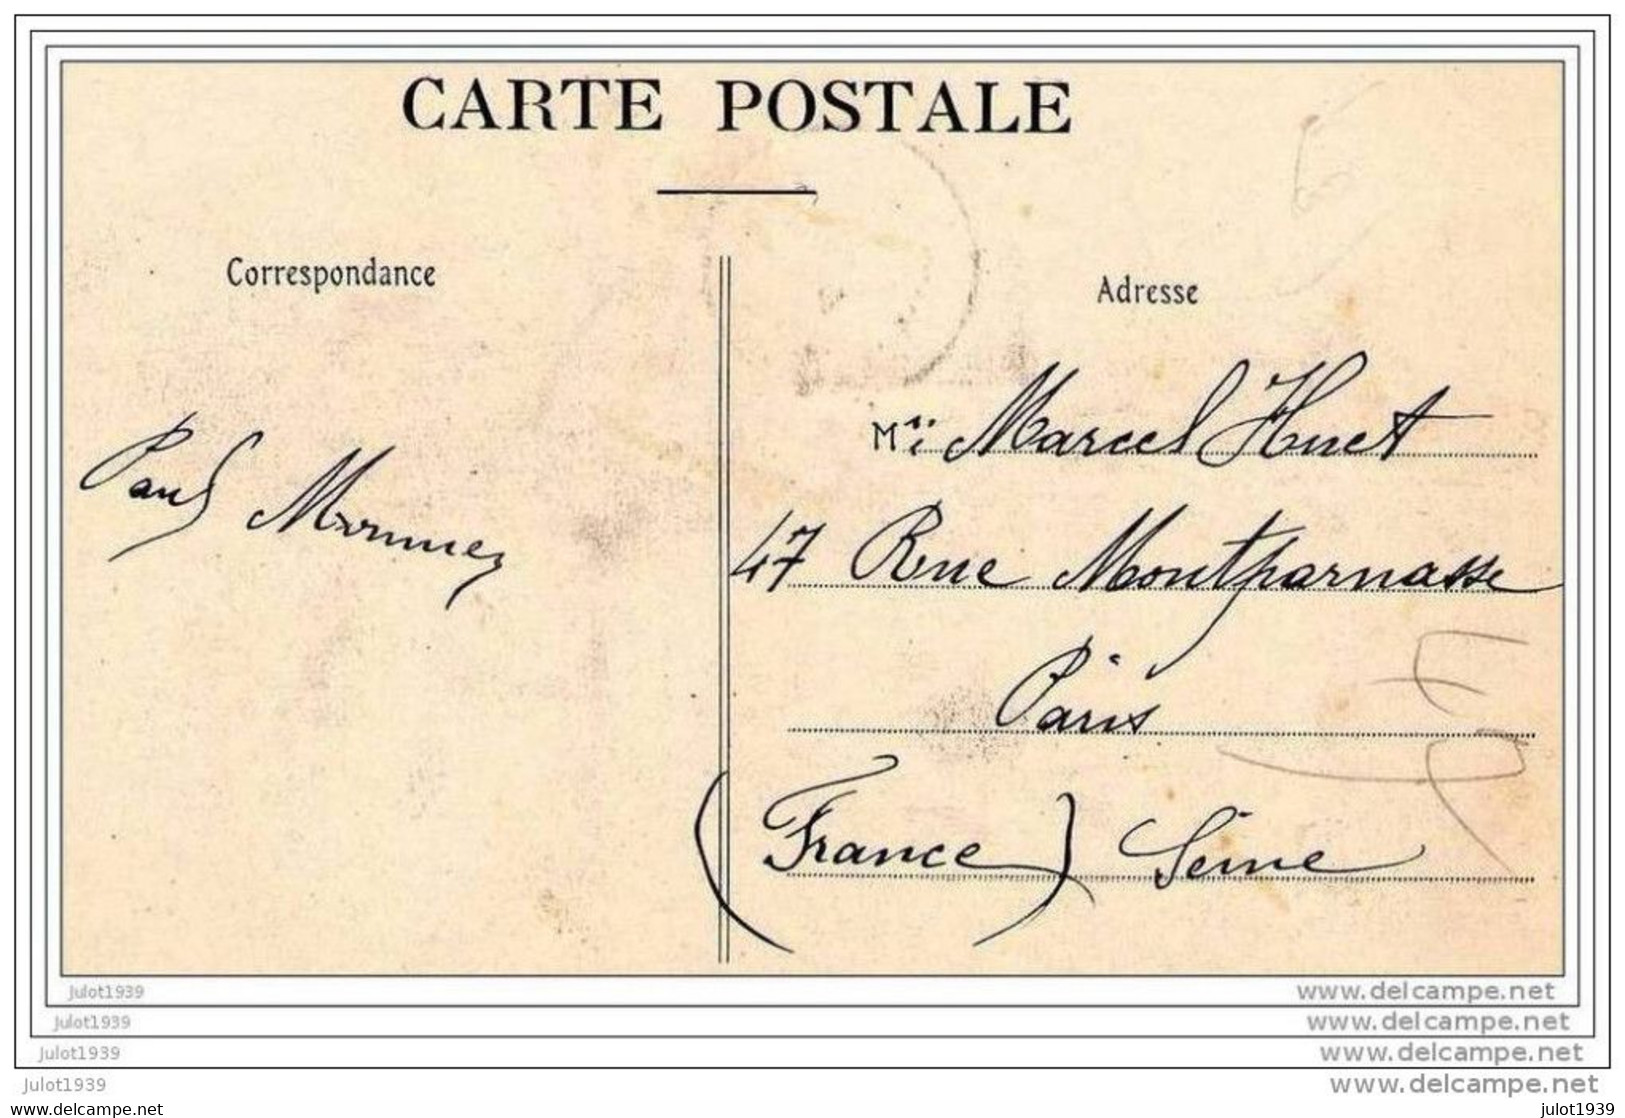 CARTE POSTALE
Correspondance
Adresse
Marcel Huet
47 Rue Montparnasse
Paris
(France) Seine
Paul
Julot1939
www.delcampe.net
Julot1939
www.delcampe.net
Julot1939
www.delcampe.net
Julot1939
www.delcampe.net
www.delcampe.net
julot1939